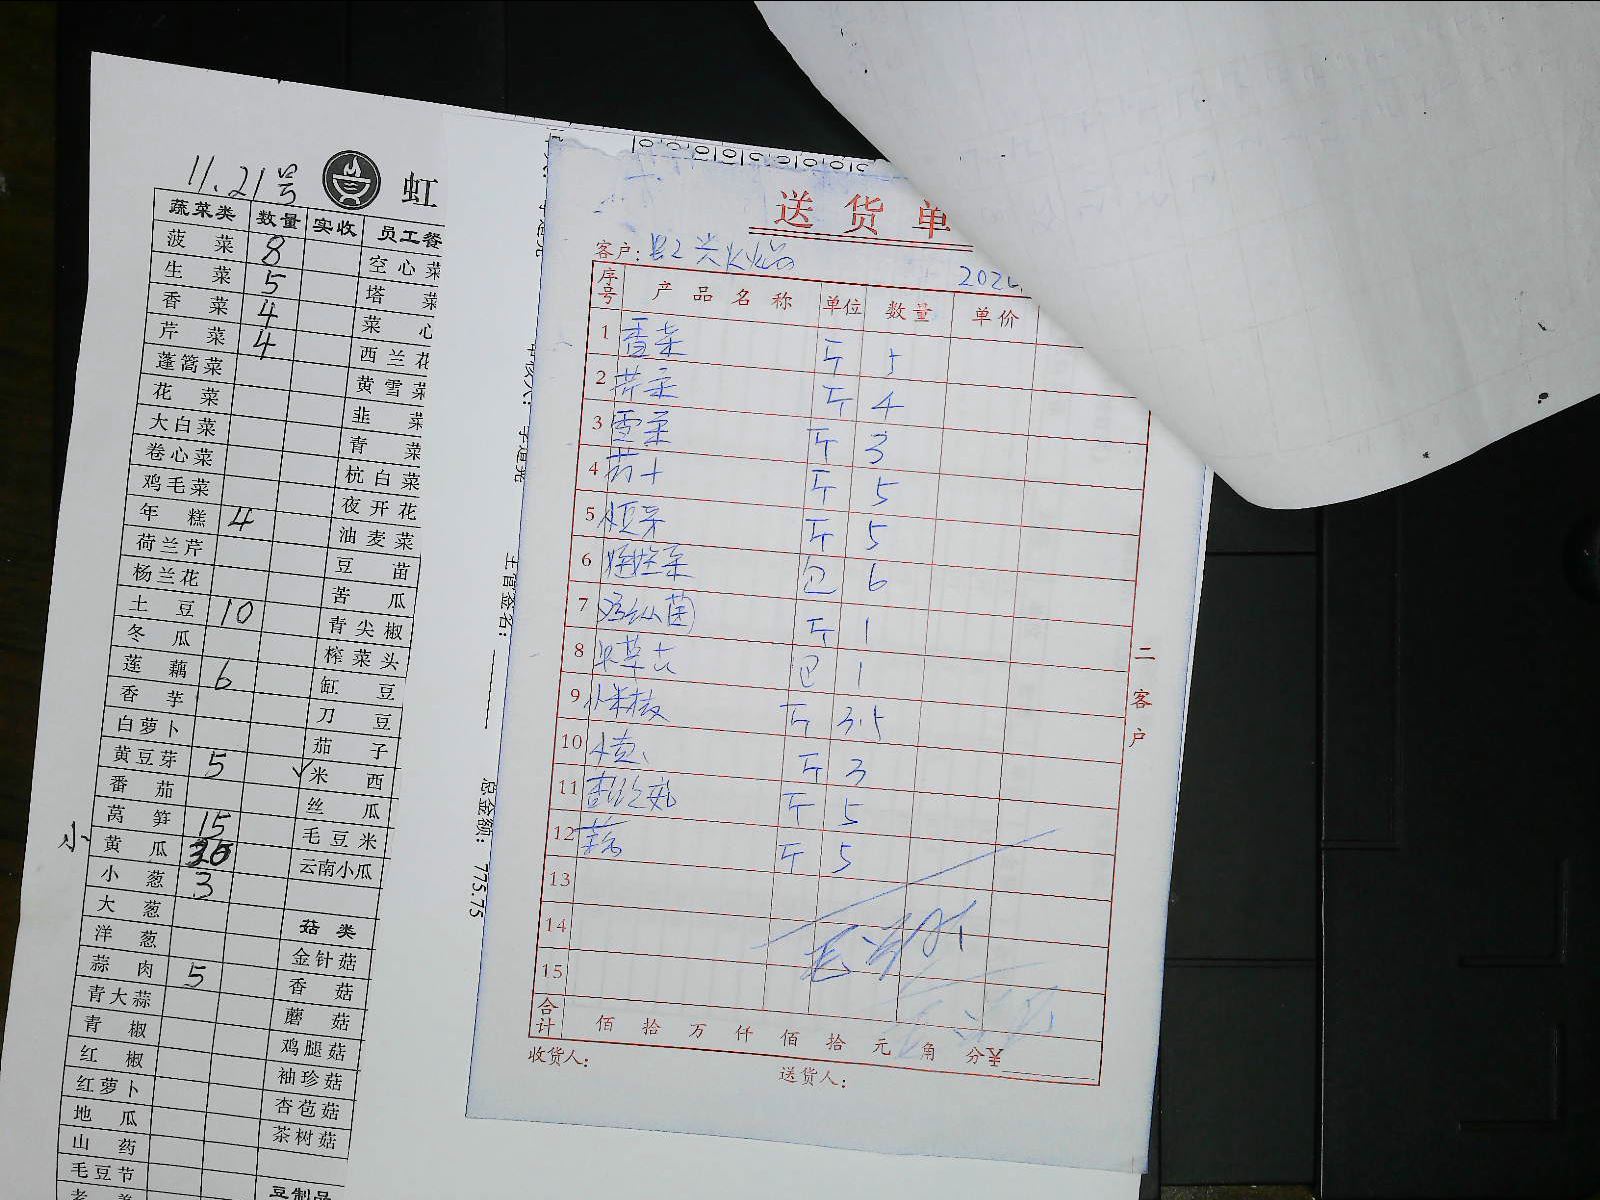 11.21号
虹
蔬菜类 数量 实收 员工餐
菠菜 8 空心菜
生菜 5 塔菜
香菜 4 菜心
芹菜 4 西兰花
蓬篙菜 黄雪菜
花菜 韭菜
大白菜 青菜
卷心菜 杭白菜
鸡毛菜 夜开花
年糕 4 油麦菜
荷兰芹 豆苗
杨兰花 苦瓜
土豆 10 青尖椒
冬瓜 榨菜头
莲藕 6 缸豆
香芋 刀豆
白萝卜 茄子
黄豆芽 5 ✓米西
番茄 丝瓜
莴笋 15 毛豆米
小 黄瓜 30 云南小瓜
小葱 3
大葱 菇类
洋葱 金针菇
蒜肉 5 香菇
青大蒜 蘑菇
青椒 鸡腿菇
红椒 袖珍菇
红萝卜 杏苞菇
地瓜 茶树菇
山药
毛豆节 豆制品
主管签名:
总金额: 775.75
送货单
客户:
202
序号 产品名称 单位 数量 单价
1 香菜 斤 5
2 芹菜 斤 4
3 雪菜 斤 3
4 斤 5
5 斤 5
6 娃娃菜 包 6
7 鸡纵菌 斤 1
8 包 1
9 小米椒 斤 3.5
10 斤 3
11 杏鲍菇 斤 5
12 斤 5
13
14
15
合计 佰 拾 万 仟 佰 拾 元 角 分 ¥
收货人: 送货人:
二客户